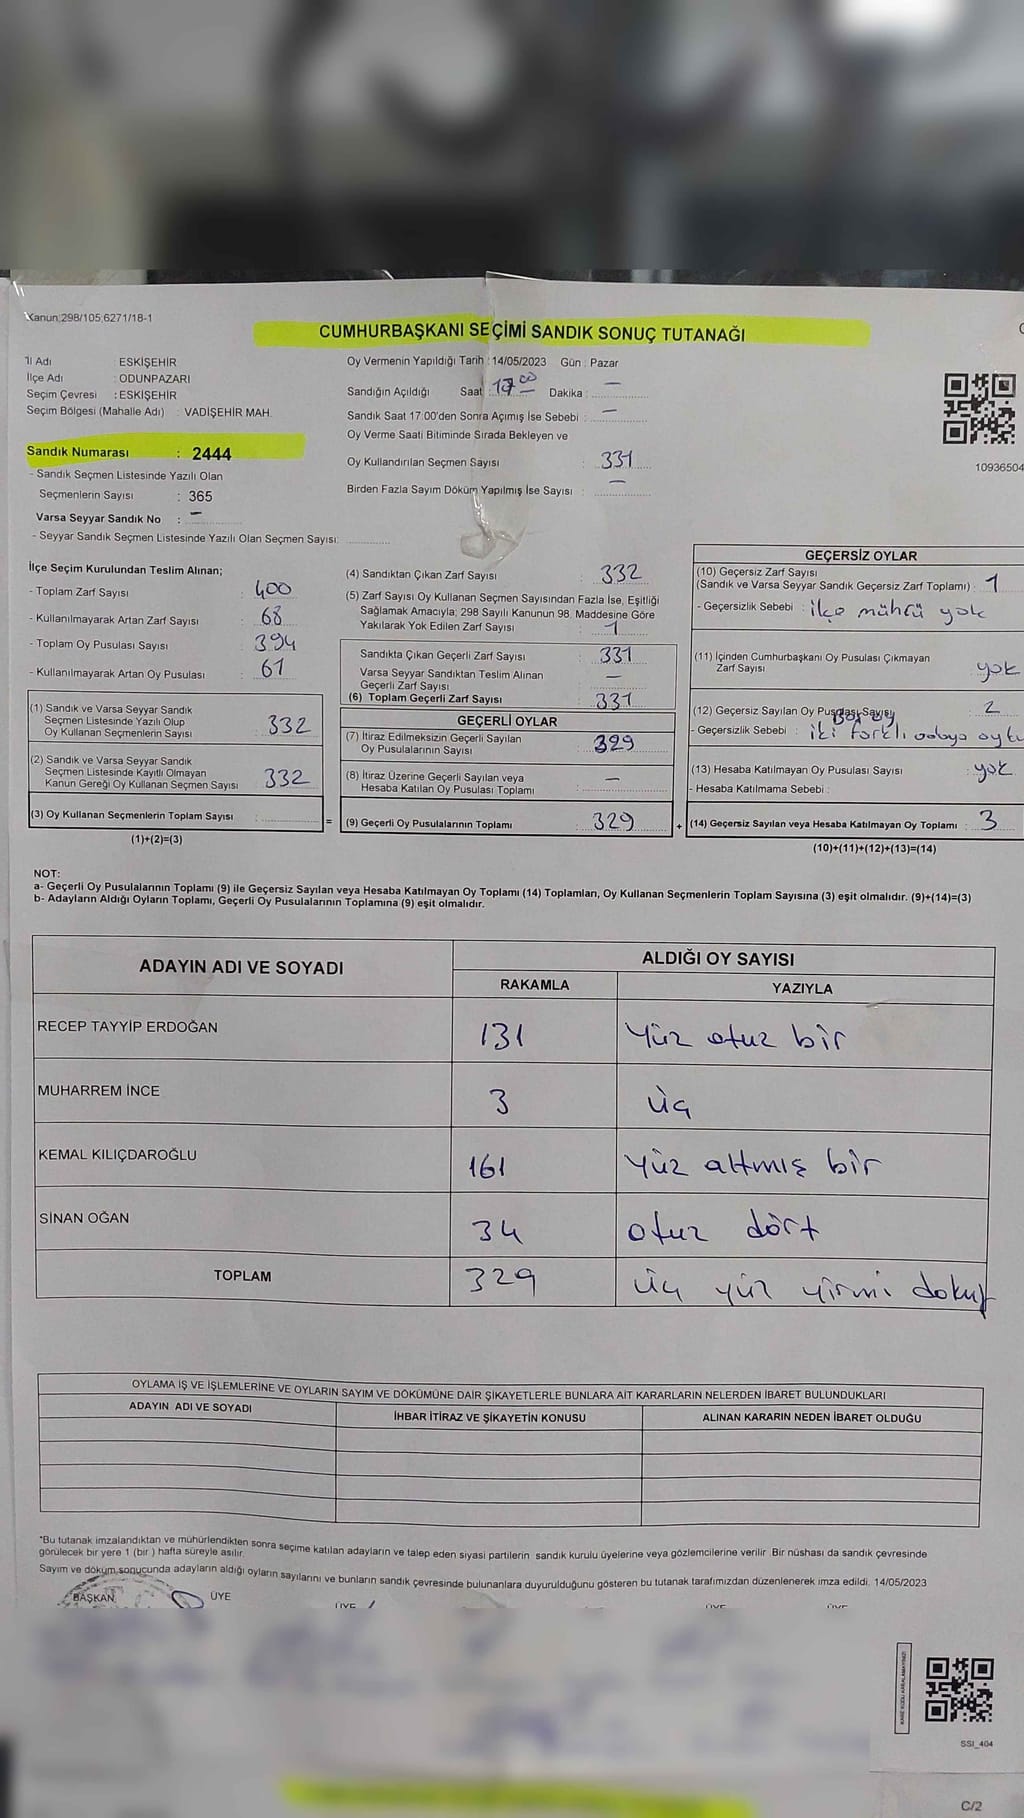 Kanun;298/105,6271/18-1
CUMHURBAŞKANI SEÇİMİ SANDIK SONUÇ TUTANAĞI
İl Adı : ESKİŞEHİR
İlçe Adı : ODUNPAZARI
Seçim Çevresi : ESKİŞEHİR
Seçim Bölgesi (Mahalle Adı) : VADİŞEHİR MAH.
Sandık Numarası : 2444
- Sandık Seçmen Listesinde Yazılı Olan
Seçmenlerin Sayısı : 365
Varsa Seyyar Sandık No : -
- Seyyar Sandık Seçmen Listesinde Yazılı Olan Seçmen Sayısı:
Oy Vermenin Yapıldığı Tarih : 14/05/2023 Gün : Pazar
Sandığın Açıldığı Saat : 17 00 Dakika : -
Sandık Saat 17.00'den Sonra Açımış İse Sebebi : -
Oy Verme Saati Bitiminde Sırada Bekleyen ve
Oy Kullandırılan Seçmen Sayısı : 331
Birden Fazla Sayım Döküm Yapılmış İse Sayısı : -
10936504
İlçe Seçim Kurulundan Teslim Alınan;
- Toplam Zarf Sayısı : 400
- Kullanılmayarak Artan Zarf Sayısı : 68
- Toplam Oy Pusulası Sayısı : 394
- Kullanılmayarak Artan Oy Pusulası : 61
(1) Sandık ve Varsa Seyyar Sandık
Seçmen Listesinde Yazılı Olup
Oy Kullanan Seçmenlerin Sayısı : 332
(2) Sandık ve Varsa Seyyar Sandık
Seçmen Listesinde Kayıtlı Olmayan
Kanun Gereği Oy Kullanan Seçmen Sayısı : 332
(3) Oy Kullanan Seçmenlerin Toplam Sayısı :
(1)+(2)=(3)
(4) Sandıktan Çıkan Zarf Sayısı : 332
(5) Zarf Sayısı Oy Kullanan Seçmen Sayısından Fazla İse, Eşitliği
Sağlamak Amacıyla; 298 Sayılı Kanunun 98. Maddesine Göre
Yakılarak Yok Edilen Zarf Sayısı : 1
Sandıkta Çıkan Geçerli Zarf Sayısı : 331
Varsa Seyyar Sandıktan Teslim Alınan
Geçerli Zarf Sayısı : -
(6) Toplam Geçerli Zarf Sayısı : 331
GEÇERLİ OYLAR
(7) İtiraz Edilmeksizin Geçerli Sayılan
Oy Pusulalarının Sayısı : 329
(8) İtiraz Üzerine Geçerli Sayılan veya
Hesaba Katılan Oy Pusulası Toplamı : -
= (9) Geçerli Oy Pusulalarının Toplamı : 329 +
GEÇERSİZ OYLAR
(10) Geçersiz Zarf Sayısı
(Sandık ve Varsa Seyyar Sandık Geçersiz Zarf Toplamı) : 1
- Geçersizlik Sebebi : ilçe mührü yok
(11) İçinden Cumhurbaşkanı Oy Pusulası Çıkmayan
Zarf Sayısı : yok
(12) Geçersiz Sayılan Oy Pusulası Sayısı : 2
Boş oy
- Geçersizlik Sebebi : iki farklı
(13) Hesaba Katılmayan Oy Pusulası Sayısı : yok
- Hesaba Katılmama Sebebi :
(14) Geçersiz Sayılan veya Hesaba Katılmayan Oy Toplamı : 3
(10)+(11)+(12)+(13)=(14)
NOT:
a- Geçerli Oy Pusulalarının Toplamı (9) ile Geçersiz Sayılan veya Hesaba Katılmayan Oy Toplamı (14) Toplamları, Oy Kullanan Seçmenlerin Toplam Sayısına (3) eşit olmalıdır. (9)+(14)=(3)
b- Adayların Aldığı Oyların Toplamı, Geçerli Oy Pusulalarının Toplamına (9) eşit olmalıdır.
ADAYIN ADI VE SOYADI ALDIĞI OY SAYISI
RAKAMLA YAZIYLA
RECEP TAYYİP ERDOĞAN 131 Yüz otuz bir
MUHARREM İNCE 3 üç
KEMAL KILIÇDAROĞLU 161 Yüz altmış bir
SİNAN OĞAN 34 otuz dört
TOPLAM 329 üç yüz yirmi dokuz
OYLAMA İŞ VE İŞLEMLERİNE VE OYLARIN SAYIM VE DÖKÜMÜNE DAİR ŞİKAYETLERLE BUNLARA AİT KARARLARIN NELERDEN İBARET BULUNDUKLARI
ADAYIN ADI VE SOYADI İHBAR İTİRAZ VE ŞİKAYETİN KONUSU ALINAN KARARIN NEDEN İBARET OLDUĞU
*Bu tutanak imzalandıktan ve mühürlendikten sonra seçime katılan adayların ve talep eden siyasi partilerin sandık kurulu üyelerine veya gözlemcilerine verilir. Bir nüshası da sandık çevresinde
görülecek bir yere 1 (bir ) hafta süreyle asılır.
Sayım ve döküm sonucunda adayların aldığı oyların sayılarını ve bunların sandık çevresinde bulunanlara duyurulduğunu gösteren bu tutanak tarafımızdan düzenlenerek imza edildi. 14/05/2023
BAŞKAN ÜYE ÜYE ÜYE ÜYE
SSI_404
C/2